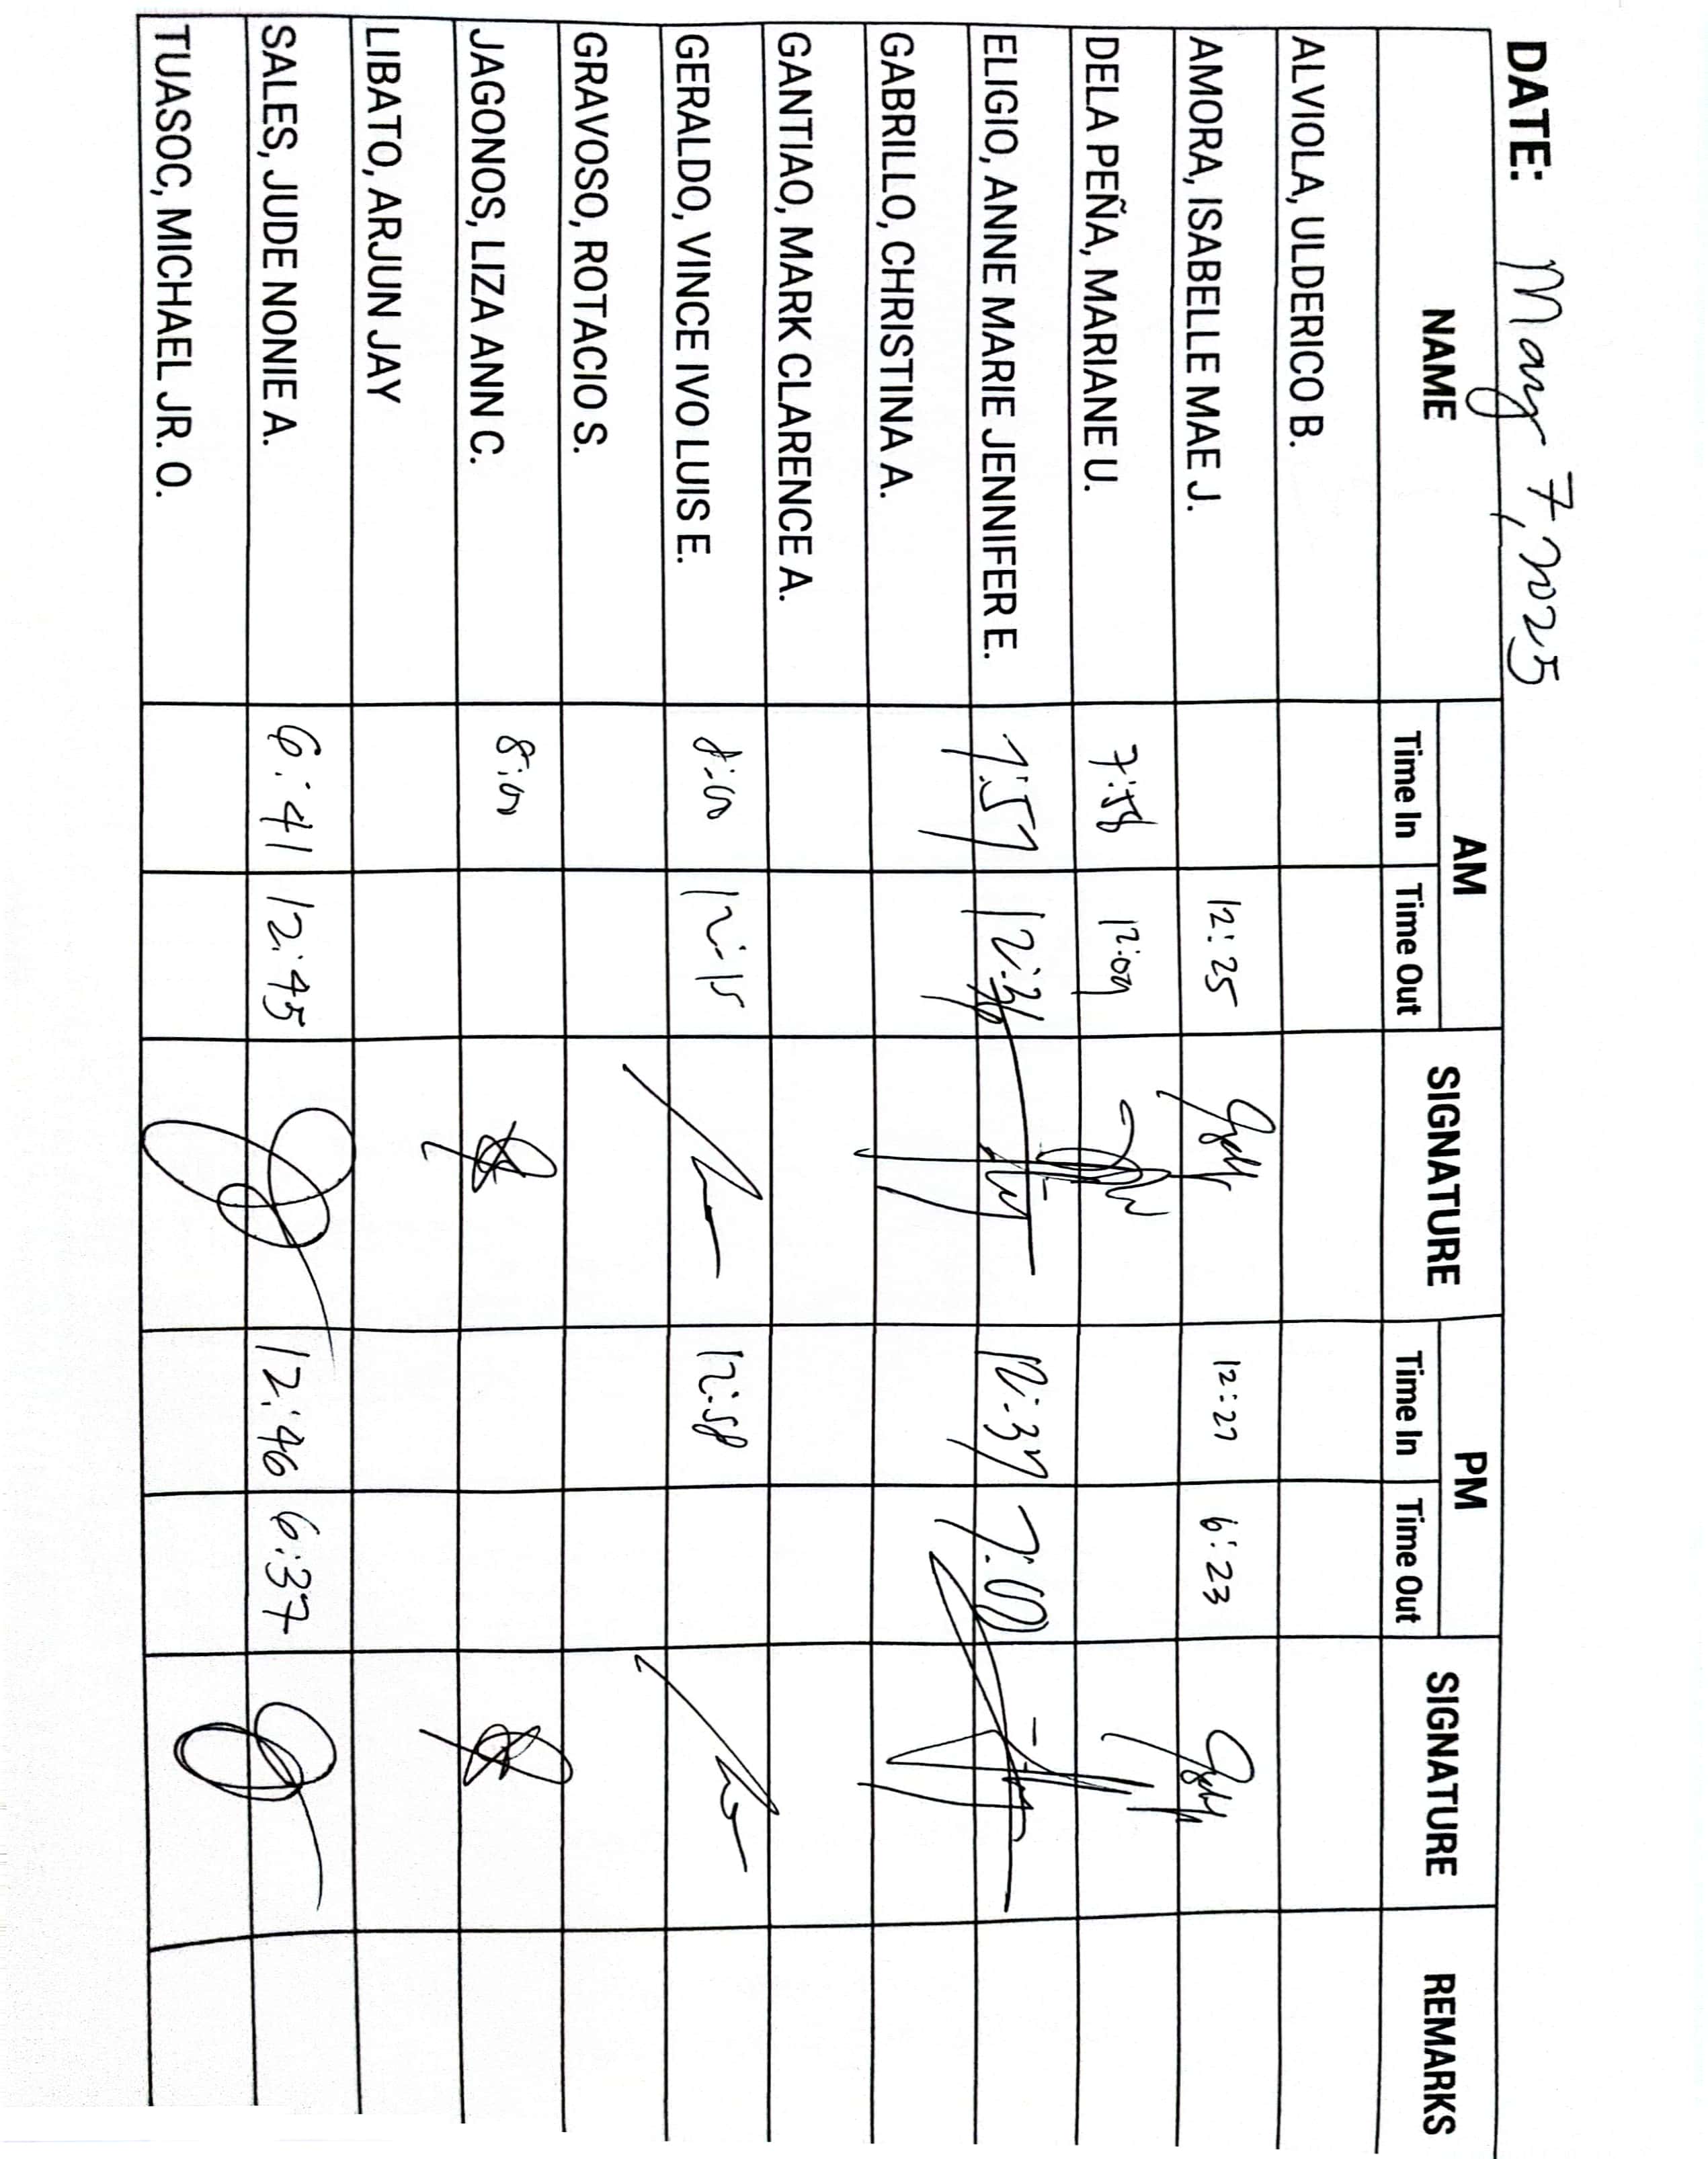 DATE: May 7, 2025
NAME AM SIGNATURE PM SIGNATURE REMARKS
Time In Time Out Time In Time Out
ALVIOLA, ULDERICO B.
AMORA, ISABELLE MAE J. 12:25 12:27 6:23
DELA PEÑA, MARIANE U. 7:58 12:09
ELIGIO, ANNE MARIE JENNIFER E. 7:57 12:36 12:37 7:00
GABRILLO, CHRISTINA A.
GANTIAO, MARK CLARENCE A.
GERALDO, VINCE IVO LUIS E. 8:00 12:15 12:58
GRAVOSO, ROTACIO S.
JAGONOS, LIZA ANN C. 8:00
LIBATO, ARJUN JAY
SALES, JUDE NONIE A. 6:41 12:45 12:46 6:37
TUASOC, MICHAEL JR. O.